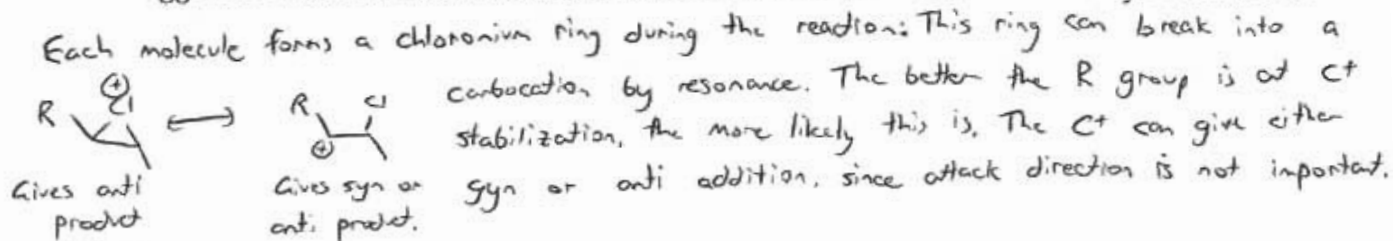 Each molecule forms a chloronium ring during the reaction: This ring can break into a
carbocation by resonance. The better the R group is at C+
stabilization, the more likely this is. The C+ can give either
syn or anti addition, since attack direction is not important.
R ⊕ Cl ⟷ R Cl ⊕
Gives anti
product
Gives syn or
anti product.